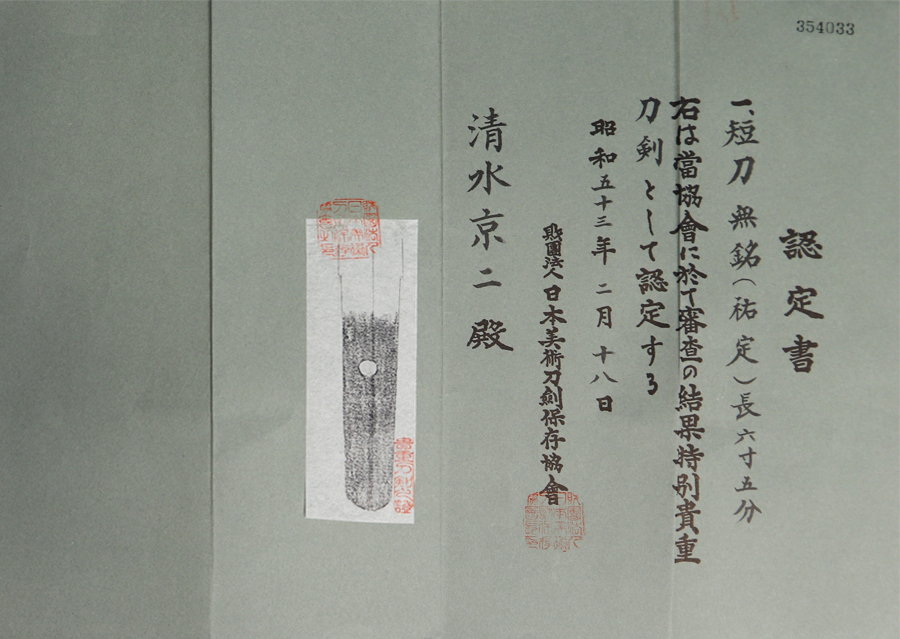 354033
認定書
一、短刀 無銘(祐定)長六寸五分
右は當協會に於て審査の結果特別貴重
刀剣として認定する
昭和五十三年 二月 十八日
財團法人 日本美術刀劍保存協會
清水京二 殿
貴重刀剣之證